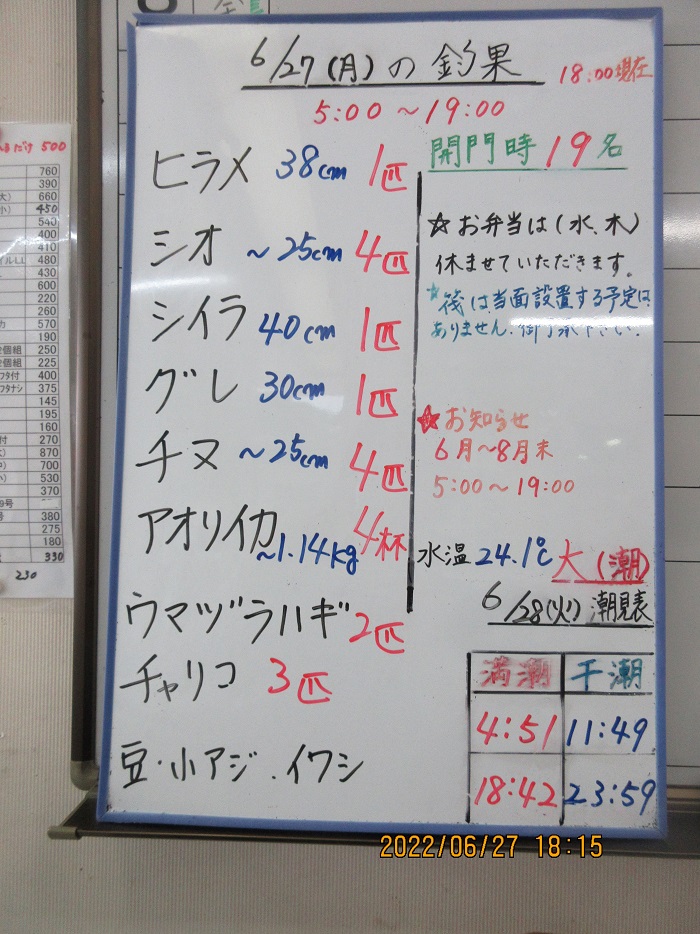 6/27(月)の釣果
18:00現在
5:00〜19:00
ヒラメ 38cm 1匹
シオ 〜25cm 4匹
シイラ 40cm 1匹
グレ 30cm 1匹
チヌ 〜25cm 4匹
アオリイカ 〜1.14kg 4杯
ウマヅラハギ 2匹
チャリコ 3匹
豆・小アジ.イワシ
開門時19名
☆お弁当は(水.木)
休ませていただきます。
☆筏は当面設置する予定は
ありません.御了承下さい.
☆お知らせ
6月〜8月末
5:00〜19:00
水温24.1℃ 大(潮)
6/28(火)潮見表
満潮 干潮
4:51 11:49
18:42 23:59
500
760
390
660
450
540
400
410
480
430
600
220
260
570
190
250
225
400
375
145
195
160
270
870
700
530
370
380
275
180
330
230
2022/06/27 18:15